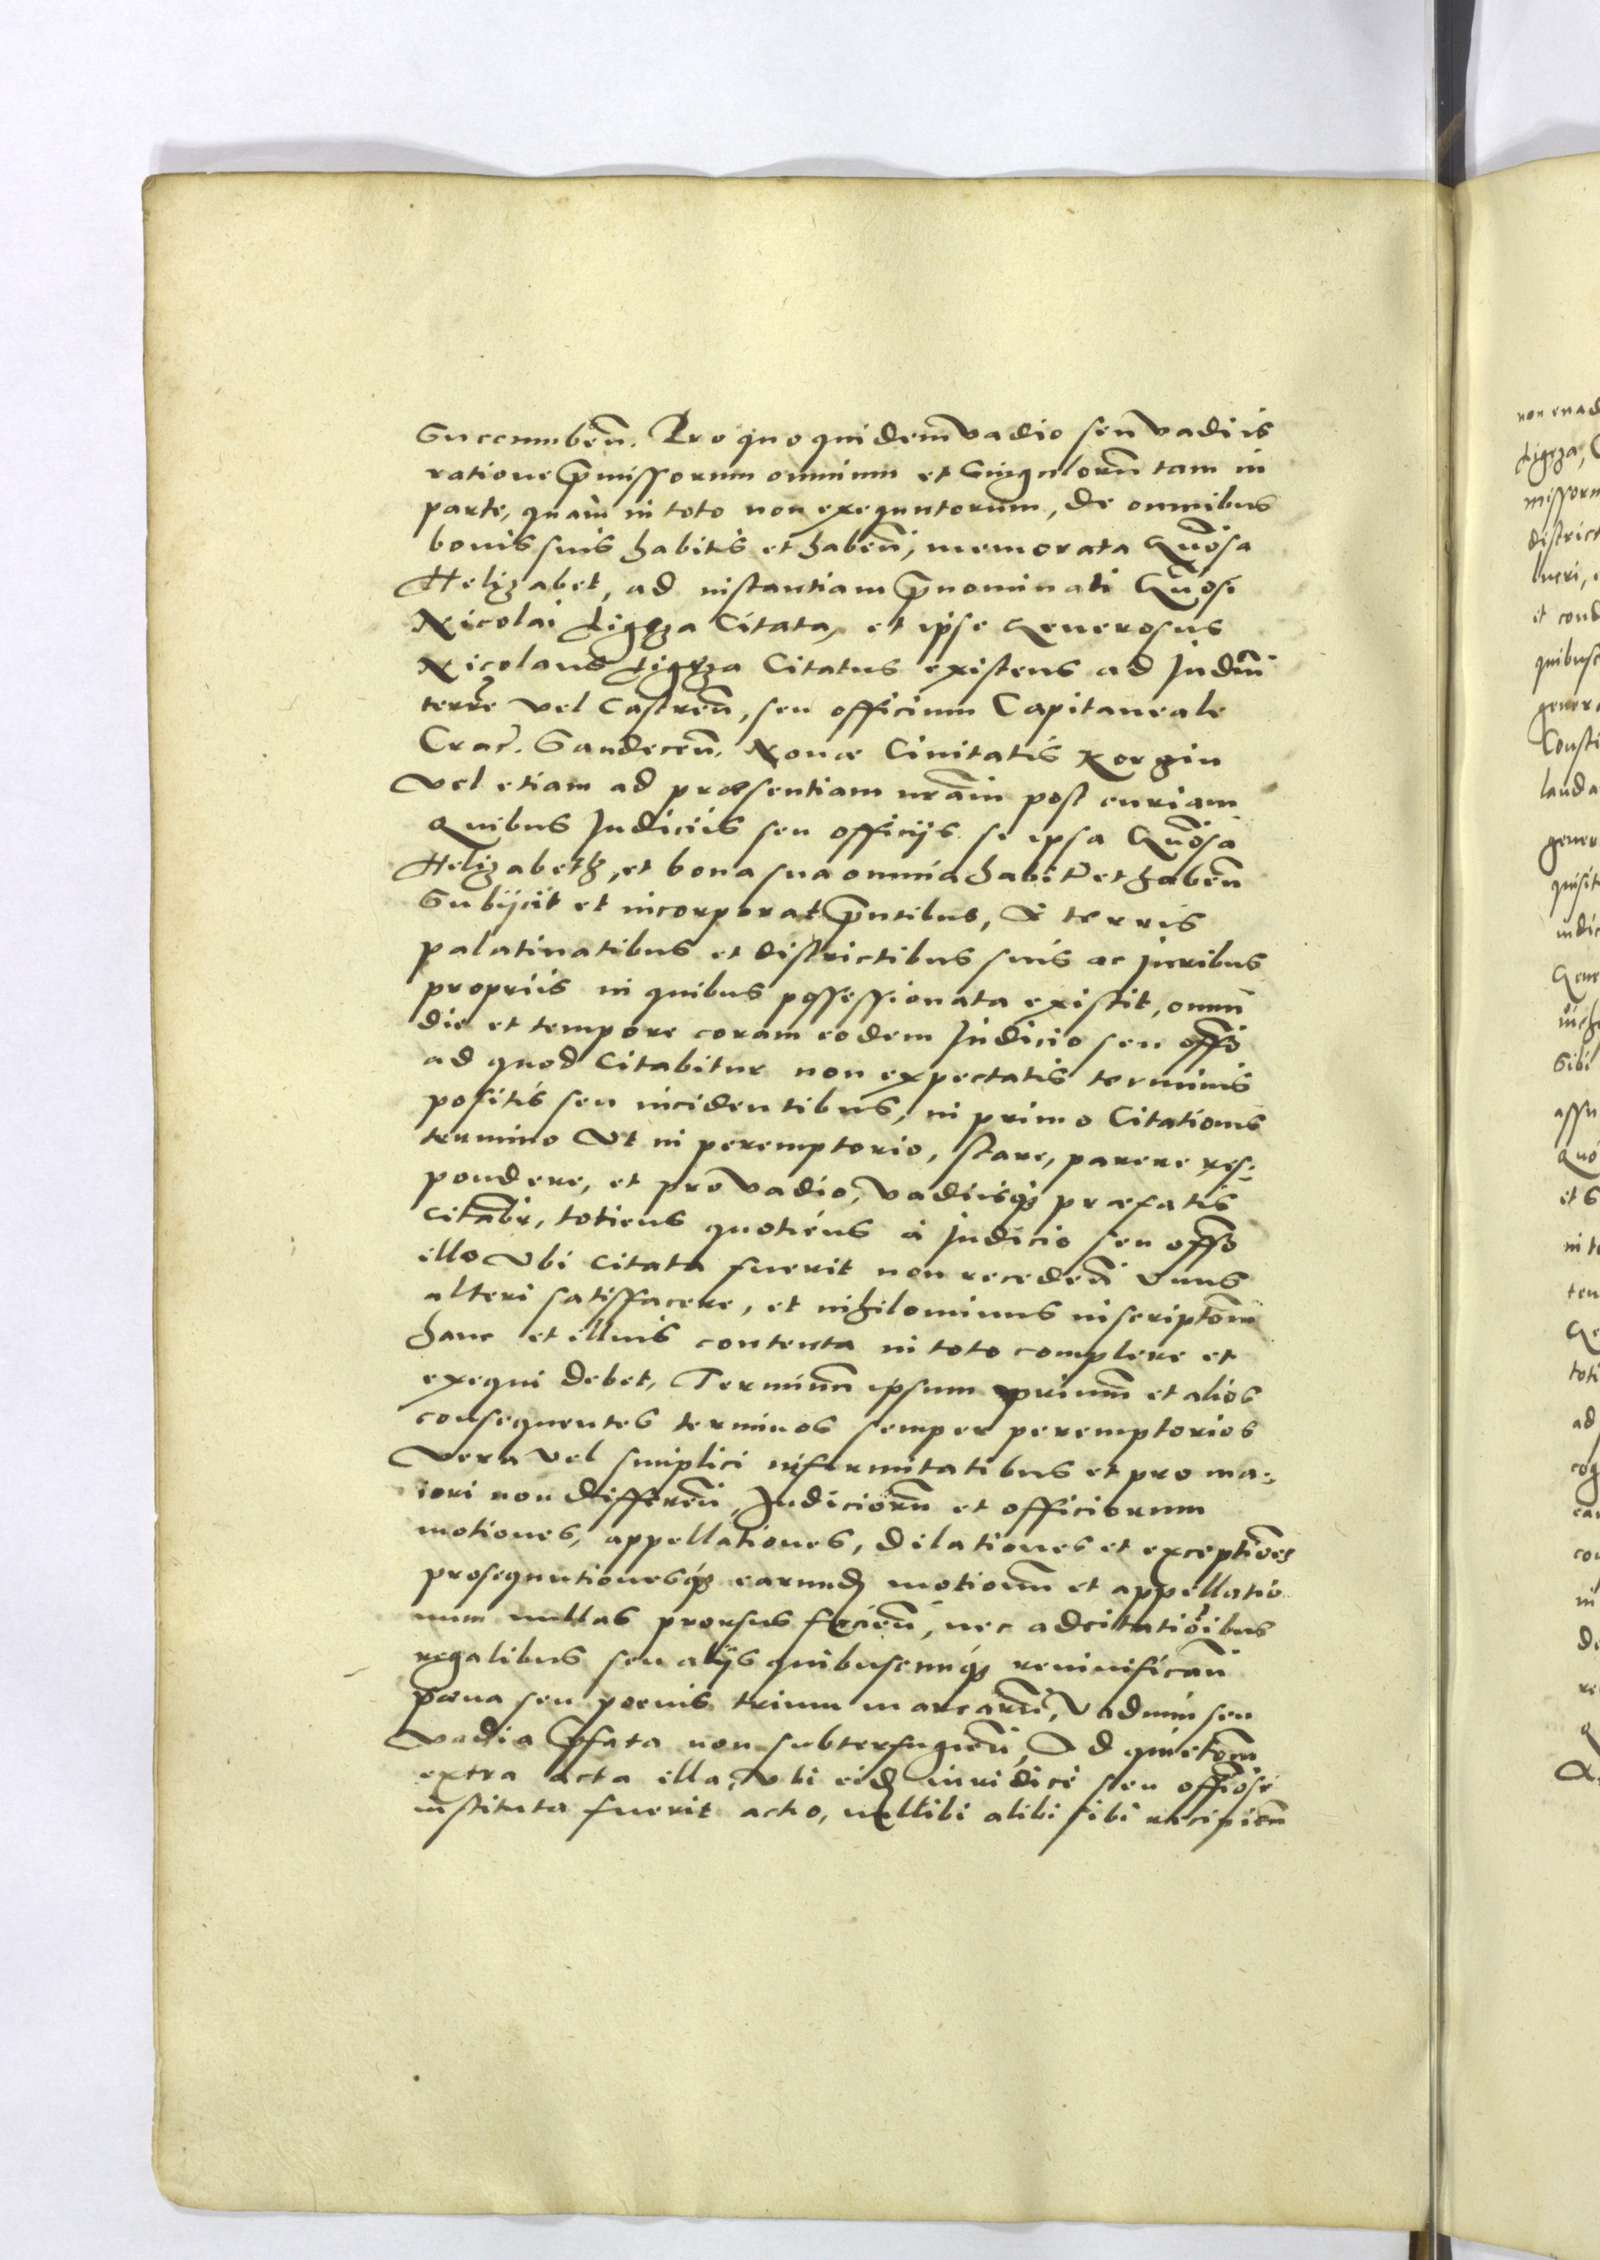 Succumben̄. Pro quo quidem vadio seu vadiis
ratione p̄missorum omnium et singulorū tam in
parte, quàm in toto non exequutorum, de omnibus
bonis suis habitis et haben̄, memorata Gn̄osa
Helizabet, ad instantiam p̄nominati Gn̄osi
Nicolai Ligęza Citata, et ipse Generosus
Nicolaus Ligęza Citatus existens ad Judiū
terrē vel Castren̄, seu officium Capitaneale
Crac̄. Sandecen̄. Nouæ Ciuitatis Korgin
Vel etiam ad præsentiam nr̄am post curiam
Quibus Judiciis seu officijs se ipsa Gn̄osa
Helizabeth, et bona sua omnia habita et haben̄
Subijcit et incorporat p̄ntibus, A terris
palatinatibus et districtibus suis ac juribus
propriis in quibus possessionata existit, omni
die et tempore coram eodem Judicio seu off̄o
ad quod Citabitur non expectatis terminis
positis seu incidentibus, in primo Citationis
termino Vt in peremptorio, stare, parere res-
pondere, et pro vadio, vadiisq; præfatis
citābr, totiens quotiens à judicio seu off̄o
illo Vbi Citata fuerit non receden̄ vnus
alteri satisfacere, et nihilominus inscriptōem
hanc et illius contenta in toto complere et
exequi debet, Terminū ipsum primū et alios
consequentes terminos semper peremptorios
Vera vel simplici infirmitatibus et pro ma-
iori non differen̄, Judiciorū et officiorum
motiones, appellationes, dilationes et exceptiōes
prosequutionesq; earund; motionū et appellatio
num nullas prorsus facien̄, nec adcitatiōibus
regalibus seu alijs quibuscunq; reuiuifican̄
pœna seu poenis trium marcarū, Vadium seu
vadia p̄fata non subterfugien̄, Ad quietōem
extra acta illa, vbi eid; iuridicè seu off̄iosè
instituta fuerit actio, nullibi alibi sibi recipien̄